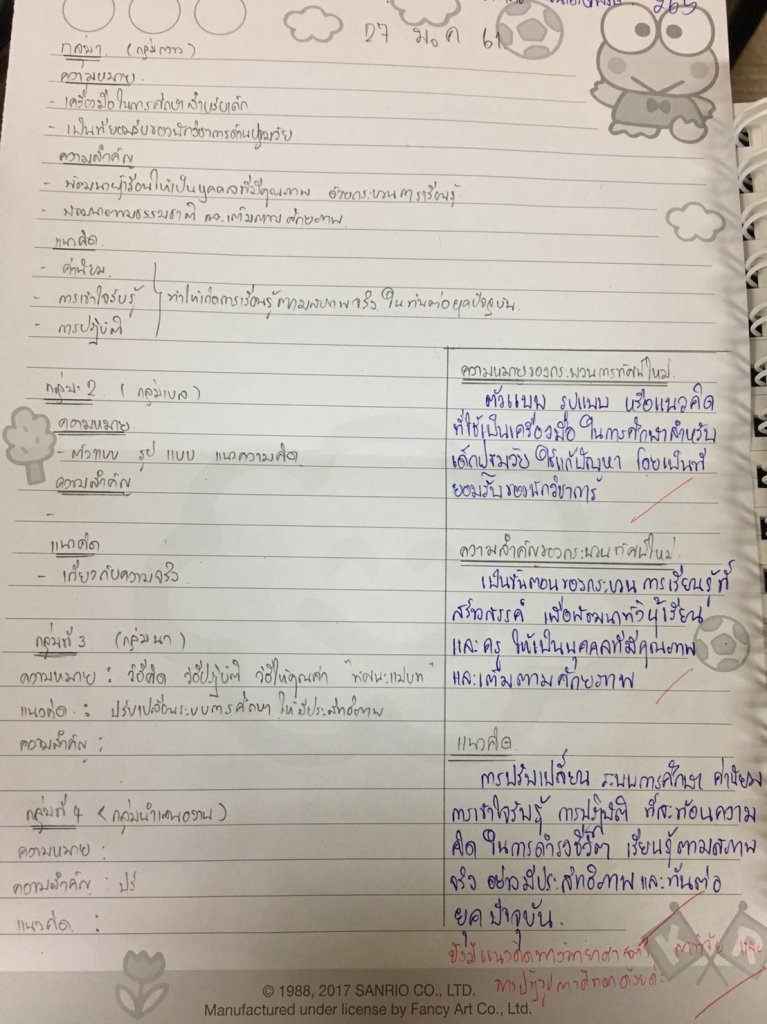 265
27 มค 61
กลุ่ม 1 (กลุ่มดาว)
ความหมาย
- เครื่องมือในการศึกษาสำหรับเด็ก
- เป็นที่ยอมรับของนักวิชาการด้านปฐมวัย
ความสำคัญ
- พัฒนาผู้เรียนให้เป็นบุคคลที่มีคุณภาพ ด้วยกระบวนการเรียนรู้
- พัฒนาตามธรรมชาติ และเต็มตามศักยภาพ
แนวคิด
- ค่านิยม
- การเข้าใจรับรู้
- การปฏิบัติ
ทำให้เกิดการเรียนรู้ตามสภาพจริง ให้ทันต่อยุคปัจจุบัน
กลุ่ม 2 (กลุ่มเบล)
ความหมาย
- ตัวแบบ รูปแบบ แนวความคิด
ความสำคัญ
-
แนวคิด
- เกี่ยวกับความจริง
กลุ่มที่ 3 (กลุ่มนา)
ความหมาย : วิธีคิด วิธีปฏิบัติ วิธีให้คุณค่า "ทัศนะแม่บท"
แนวคิด : ปรับเปลี่ยนระบบการศึกษา ให้มีประสิทธิภาพ
ความสำคัญ :
กลุ่มที่ 4 (กลุ่มนำเสนองาน)
ความหมาย :
ความสำคัญ : ปรั
แนวคิด :
ความหมายของกระบวนการทัศน์ใหม่
ตัวแบบ รูปแบบ หรือแนวคิด
ที่ใช้เป็นเครื่องมือ ในการศึกษาสำหรับ
เด็กปฐมวัย ใช้แก้ปัญหา โดยเป็นที่
ยอมรับของนักวิชาการ
ความสำคัญของกระบวนทัศน์ใหม่
เป็นขั้นตอนของกระบวนการเรียนรู้ที่
สร้างสรรค์ เพื่อพัฒนาทั้งผู้เรียน
และครู ให้เป็นบุคคลที่มีคุณภาพ
และเต็มตามศักยภาพ
แนวคิด
การปรับเปลี่ยน ระบบการศึกษา ค่านิยม
การเข้าใจรับรู้ การปฏิบัติ ที่สะท้อนความ
คิด ในการดำรงชีวิต เรียนรู้ตามสภาพ
จริง อย่างมีประสิทธิภาพ และทันต่อ
ยุคปัจจุบัน.
ยังมีแนวคิดทางวิทยาศาสตร์ การวิจัย และ
การปฏิรูปการศึกษาด้วยค่ะ
K R
© 1988, 2017 SANRIO CO., LTD.
Manufactured under license by Fancy Art Co., Ltd.